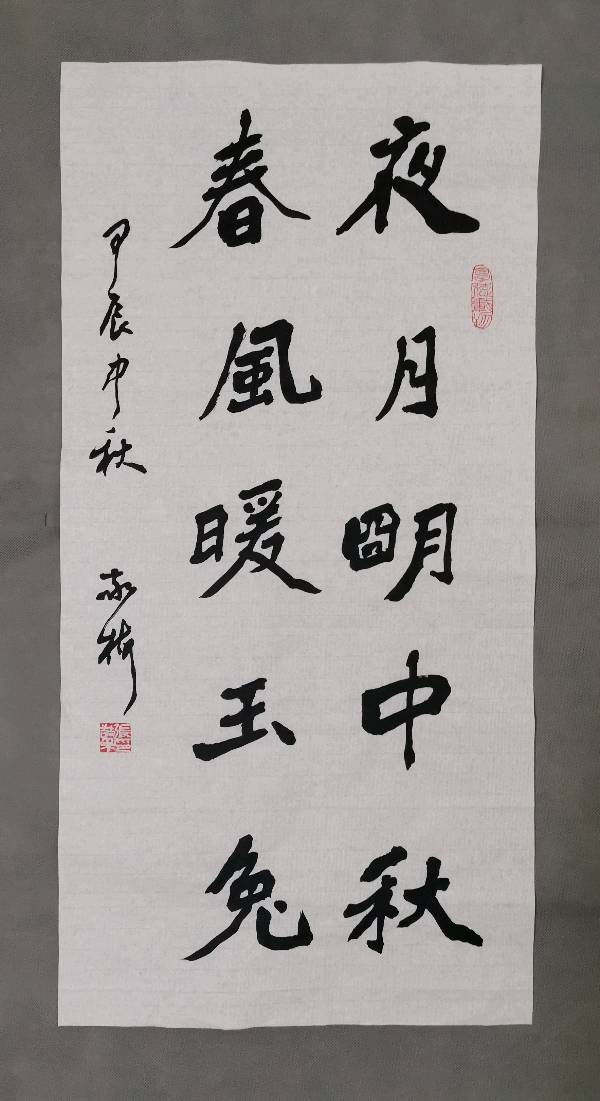 夜月明中秋
春風暖玉兔
甲辰中秋